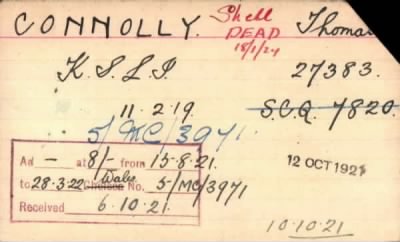 CONNOLLY. Shell Thomas
DEAD
18/1/24
K.S.L.I. 27383.
11.2.19. S.C.Q. 7820.
5/MC/3971
Ad — at 8/- from 15-8.21.
to 28-3.22 Chelsea Wales No. 5/MC/3971
Received 6.10.21.
12 OCT 1921
10.10.21